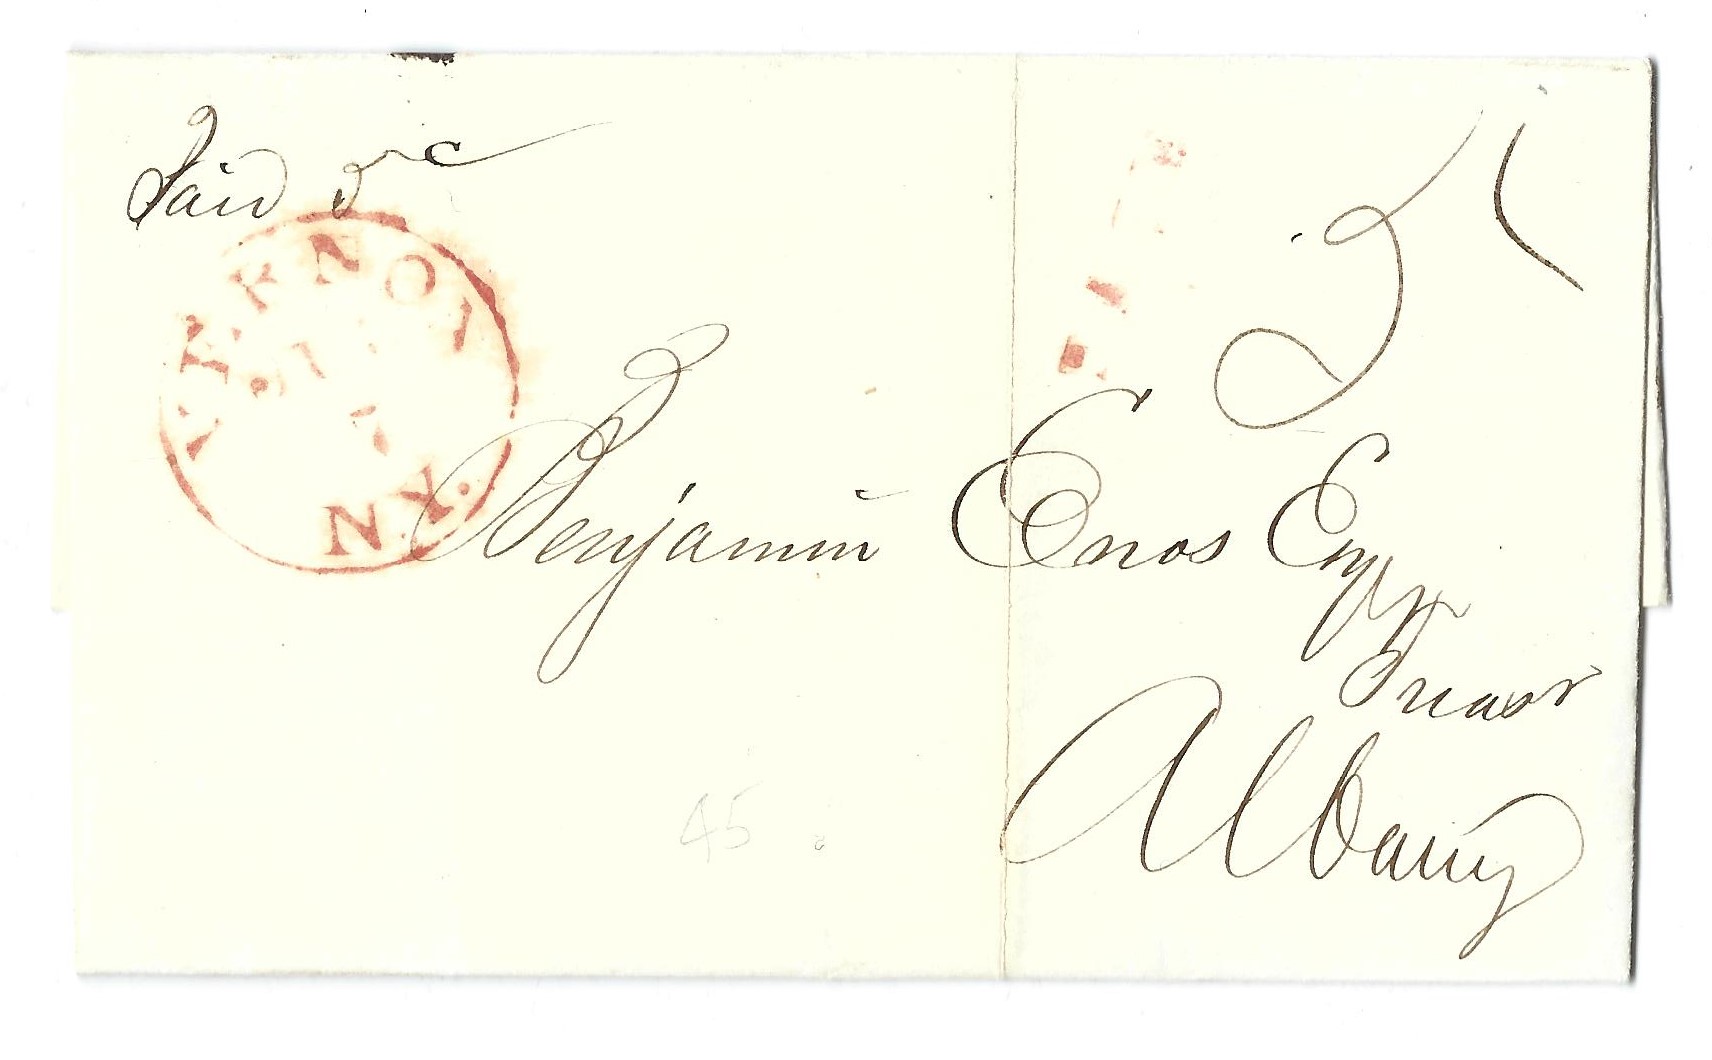 Paid 5c
5
VERNON
N.Y.
Benjamin Enos Esqr
Treasr
Albany
45